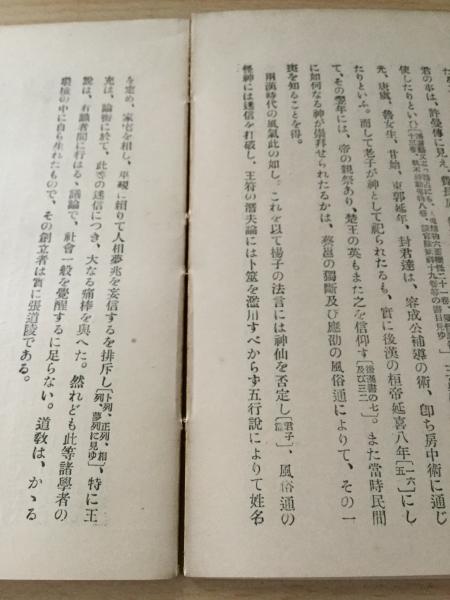 君の事は、許曼傳に見え、
使したりといひ
光、唐虞、魯女生、甘始、東郭延年、封君達は、容成公補導の術、卽ち房中術に通じ
たりといふ。而して老子が神として祀られたるも、實に後漢の桓帝延喜八年〔一六五〕にし
て、その翌年には、帝の親祭あり、楚王の英もまた之を信仰す〔後漢書の七及び三二〕。また當時民間
に如何なる神が崇拜せられたるかは、蔡邕の獨斷及び應劭の風俗通によりて、その一
斑を知ることを得。
兩漢時代の風氣此の如し。これを以て揚子の法言には神仙を否定し〔君子篇〕、風俗通の
怪神には迷信を打破し、王符の潛夫論には卜筮を濫用すべからず五行說によりて姓名
を定め、家宅を相し、巫覡に頼りて人相夢兆を妄信するを排斥し〔卜列、正列、相列、夢列に見ゆ〕、特に王
充は、論衡に於て、此等の迷信につき、大なる痛棒を與へた。然れども此等諸學者の
說は、有識者間に行はるゝ議論で、社會一般を覺醒するに足らない。道敎は、かゝる
環境の中に自ら生れたもので、その創立者は實に張道陵である。